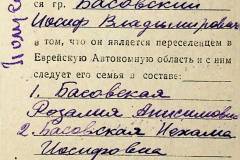 ся гр. Басовский
Иосиф Владимирович
в том, что он является переселенцем в
Еврейскую Автономную область и с ним
следует его семья в составе:
1. Басовская
Розалия Анисимовна
2. Басовская Нехама
Иосифовна